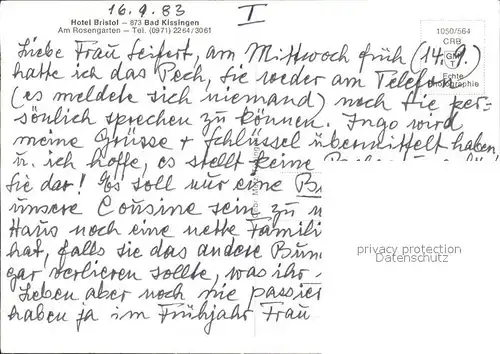 16.9.83
I
Hotel Bristol – 873 Bad Kissingen
Am Rosengarten – Tel. (0971) 2264/3061
1050/564
CRB
GM
T
Echte
Photographie
Liebe Frau Seifert, am Mittwoch früh (14.9.)
hatte ich das Pech, Sie weder am Telefon
(es meldete sich niemand) noch Sie per-
sönlich sprechen zu können. Ingo wird
meine Grüsse + Schlüssel übermittelt haben,
u. ich hoffe, es stellt keine
Sie dar! Es soll nur eine
unsere Cousine sein, zu
Haus noch eine nette Famili
hat, falls sie das andere
gar verlieren sollte, was ihr
Leben aber noch nie passier
haben ja im Frühjahr Frau
privacy protection
Datenschutz